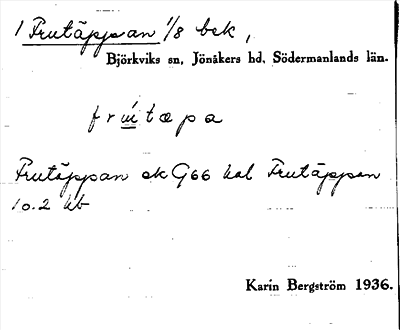 1 Frutäppan 1/8 bek,
Björkviks sn, Jönåkers hd, Södermanlands län.
frutæpa
Frutäppan ek G66 hal Frutäppan
10.2 kb
Karin Bergström 1936.